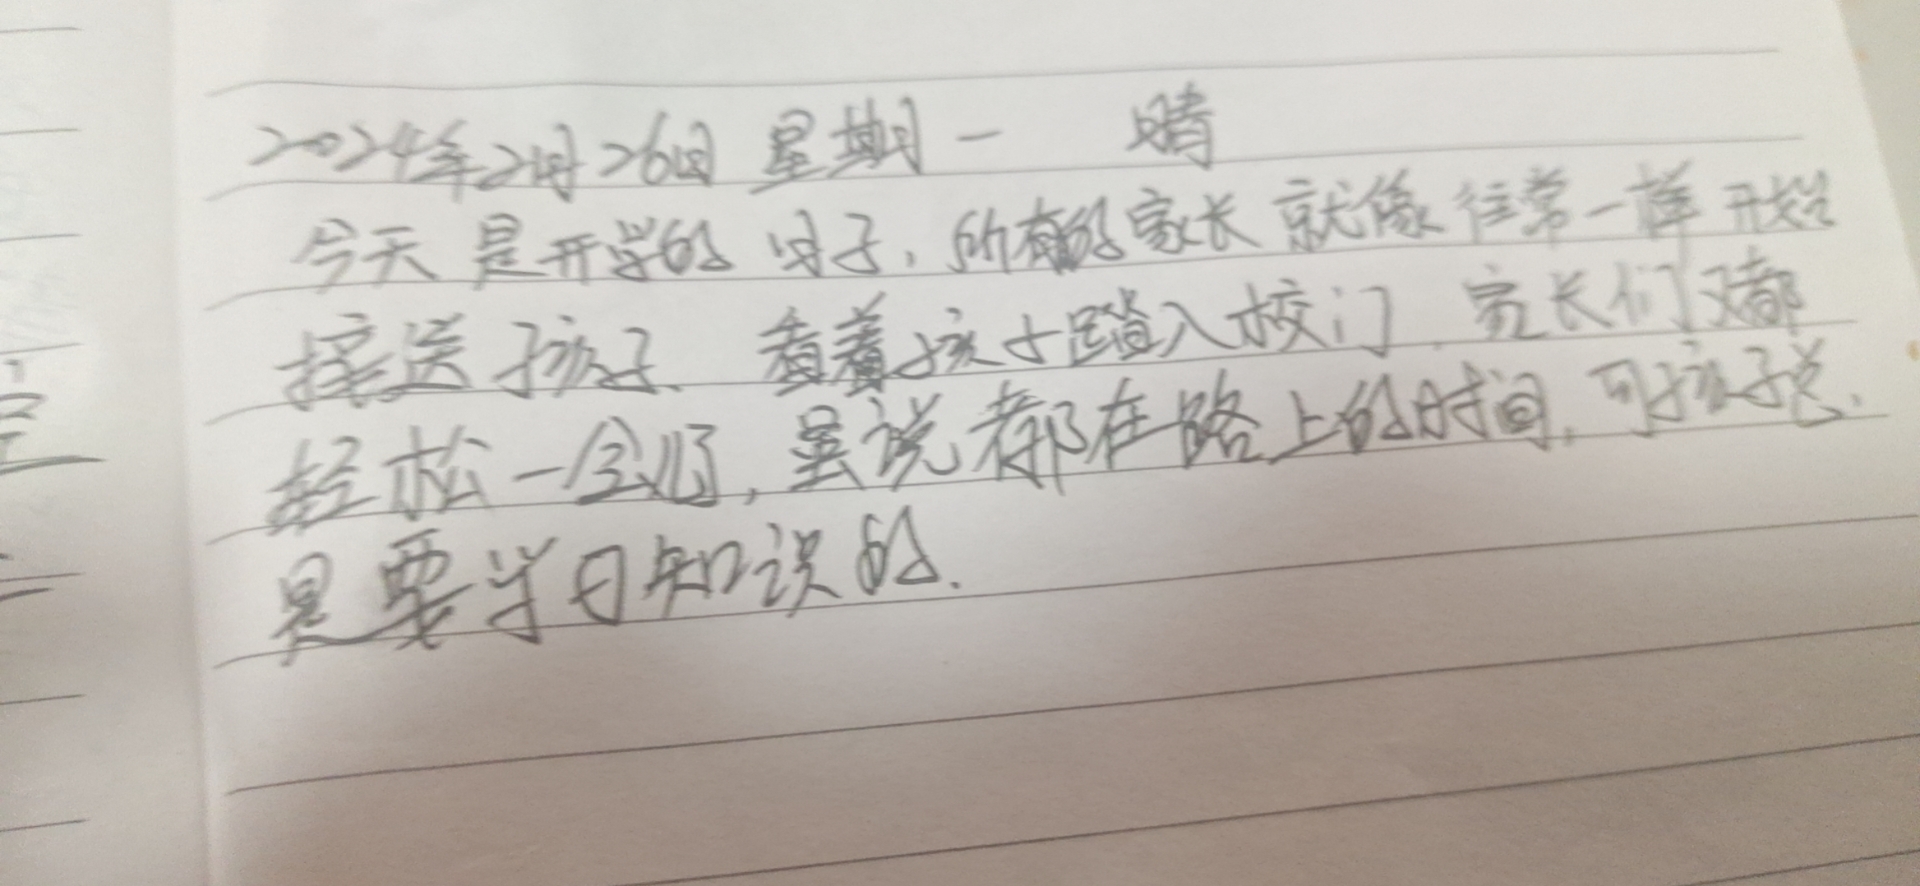 2024年2月26日 星期一 晴
今天是开学的日子，所有的家长就像往常一样开始
接送孩子、看着孩子踏入校门，家长们又都
轻松一会儿了，虽说都在路上的时间，可孩子总
是要学习知识的.